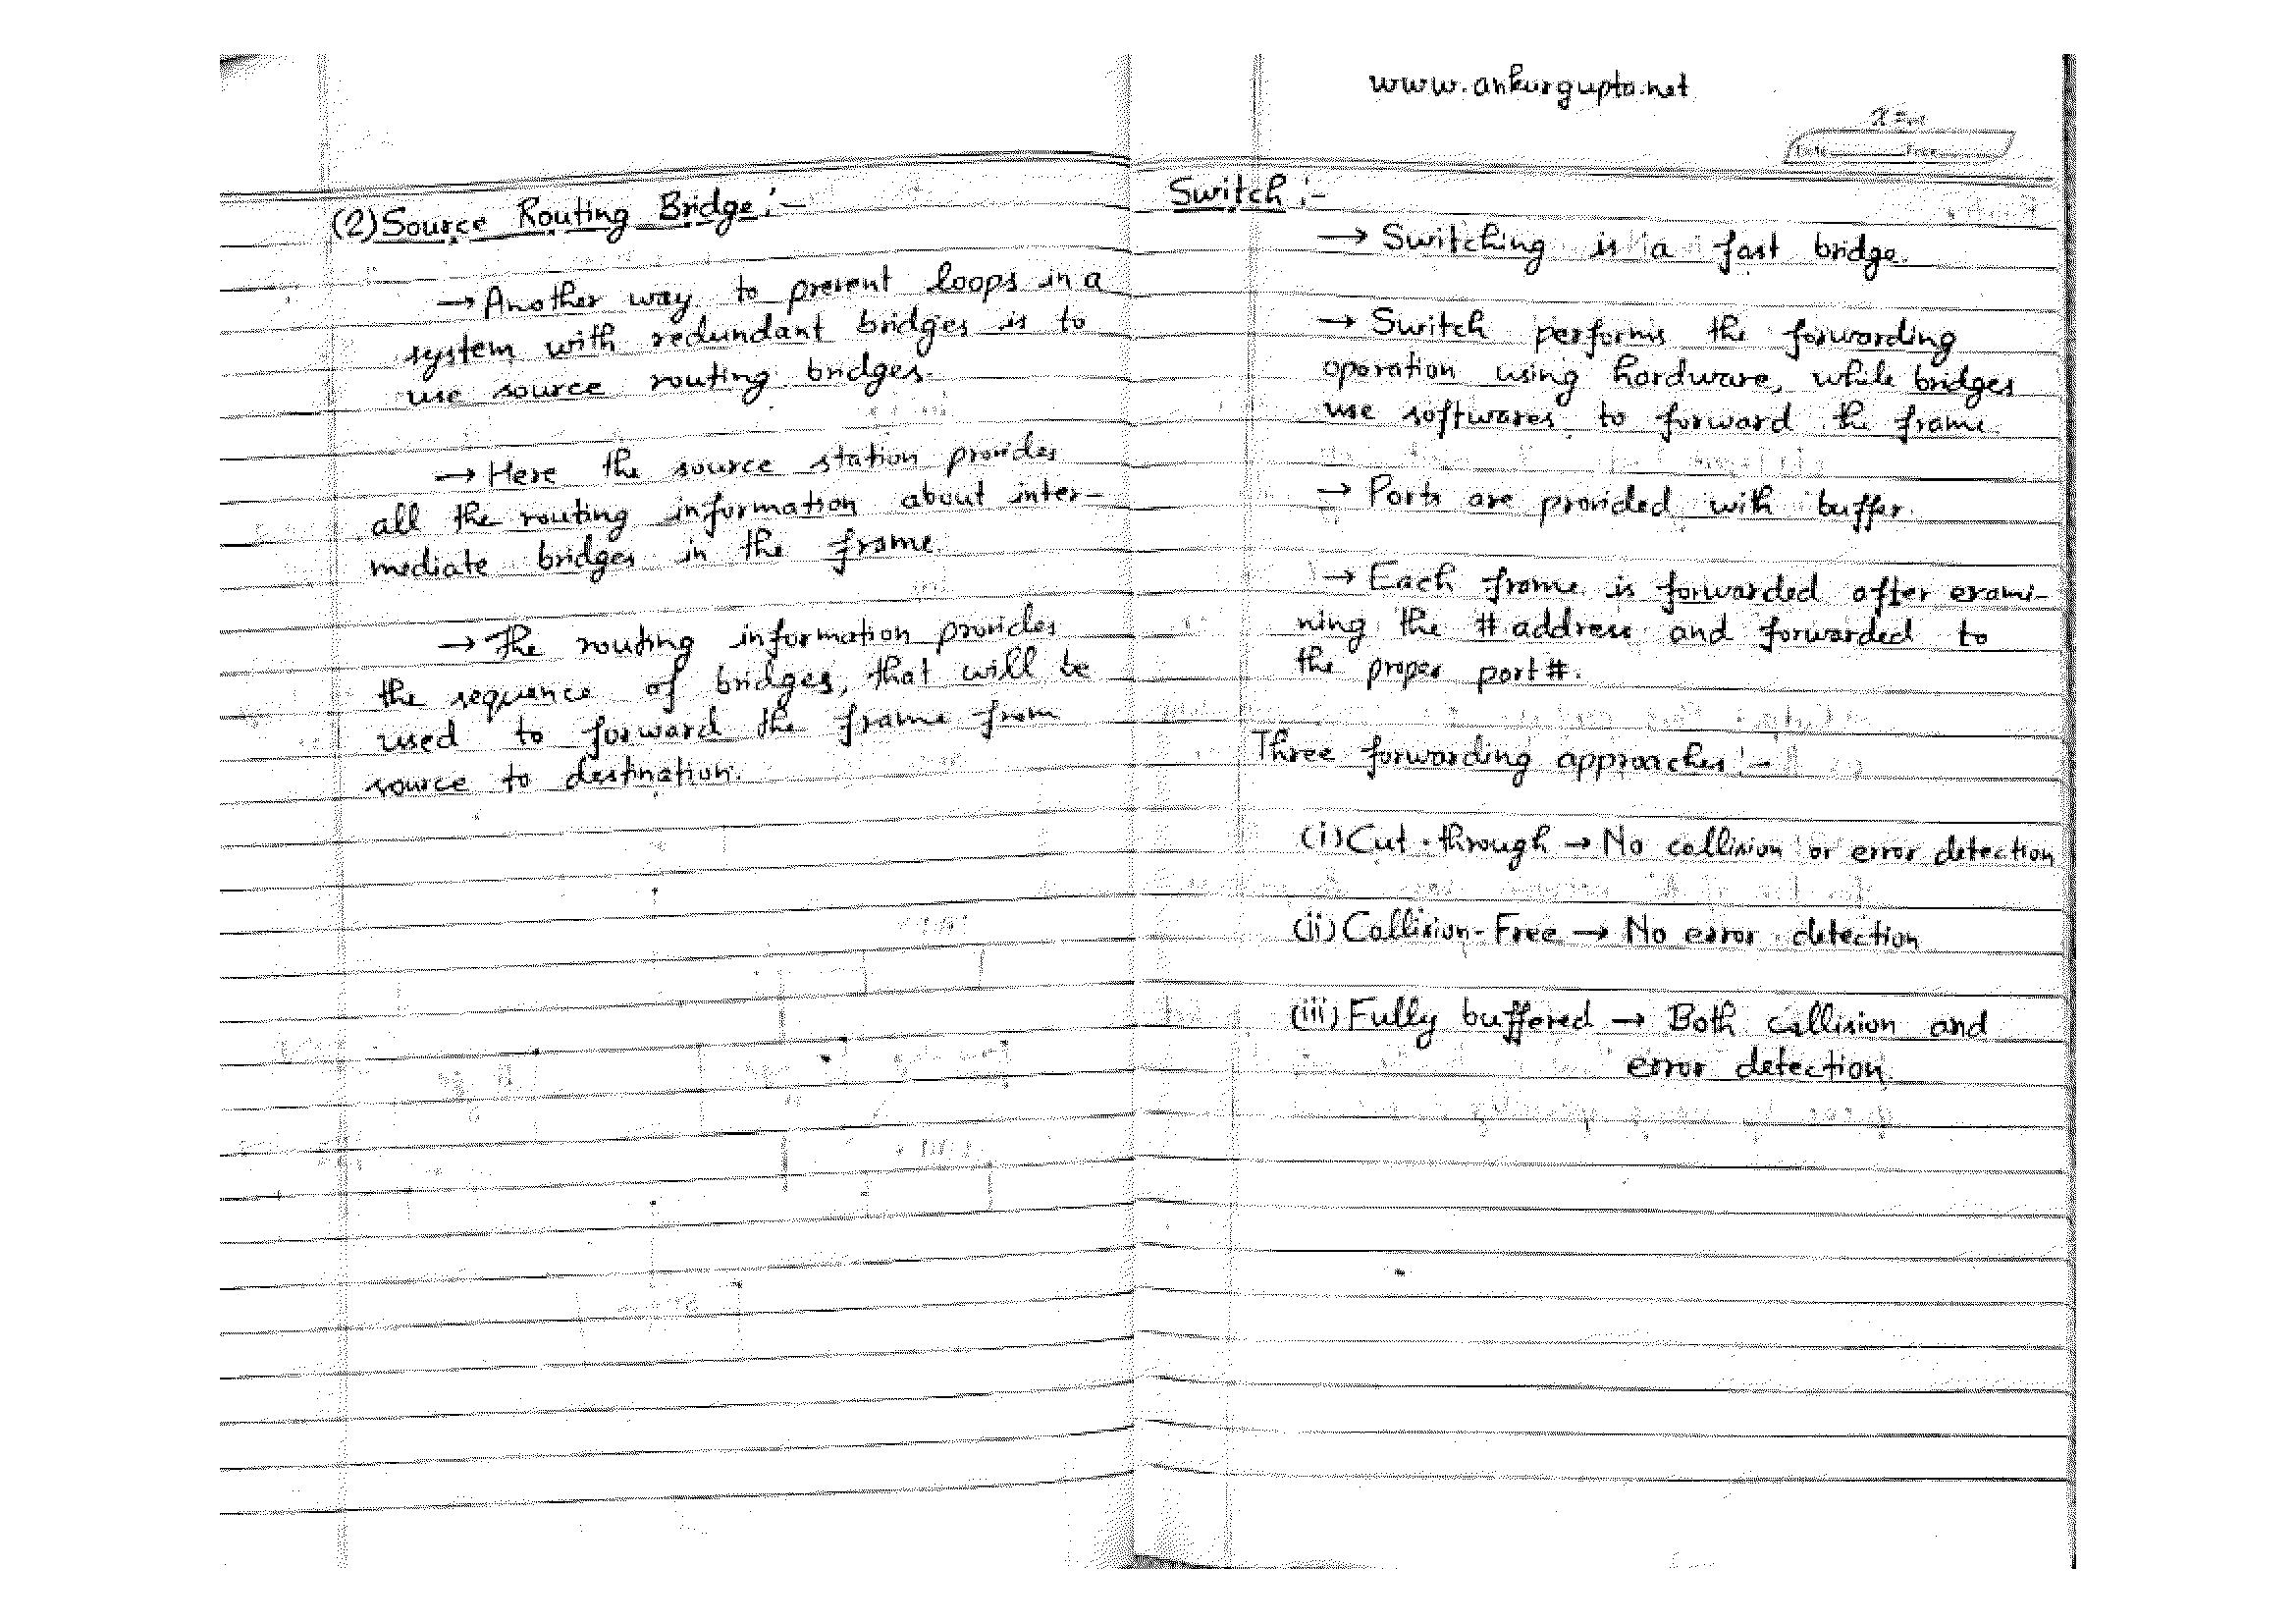 (2) Source Routing Bridge :-
→ Another way to prevent loops in a
system with redundant bridges is to
use source routing bridges.
→ Here the source station provides
all the routing information about inter-
mediate bridges in the frame.
→ The routing information provides
the sequence of bridges, that will be
used to forward the frame from
source to destination.
www.ankurgupta.net
Switch :-
→ Switching is a fast bridge.
→ Switch performs the forwarding
operation using hardware, while bridges
use softwares to forward the frame.
→ Ports are provided with buffer.
→ Each frame is forwarded after exami-
ning the # address and forwarded to
the proper port #.
Three forwarding approaches :-
(i) Cut-through → No collision or error detection
(ii) Collision-Free → No error detection
(iii) Fully buffered → Both collision and
error detection.